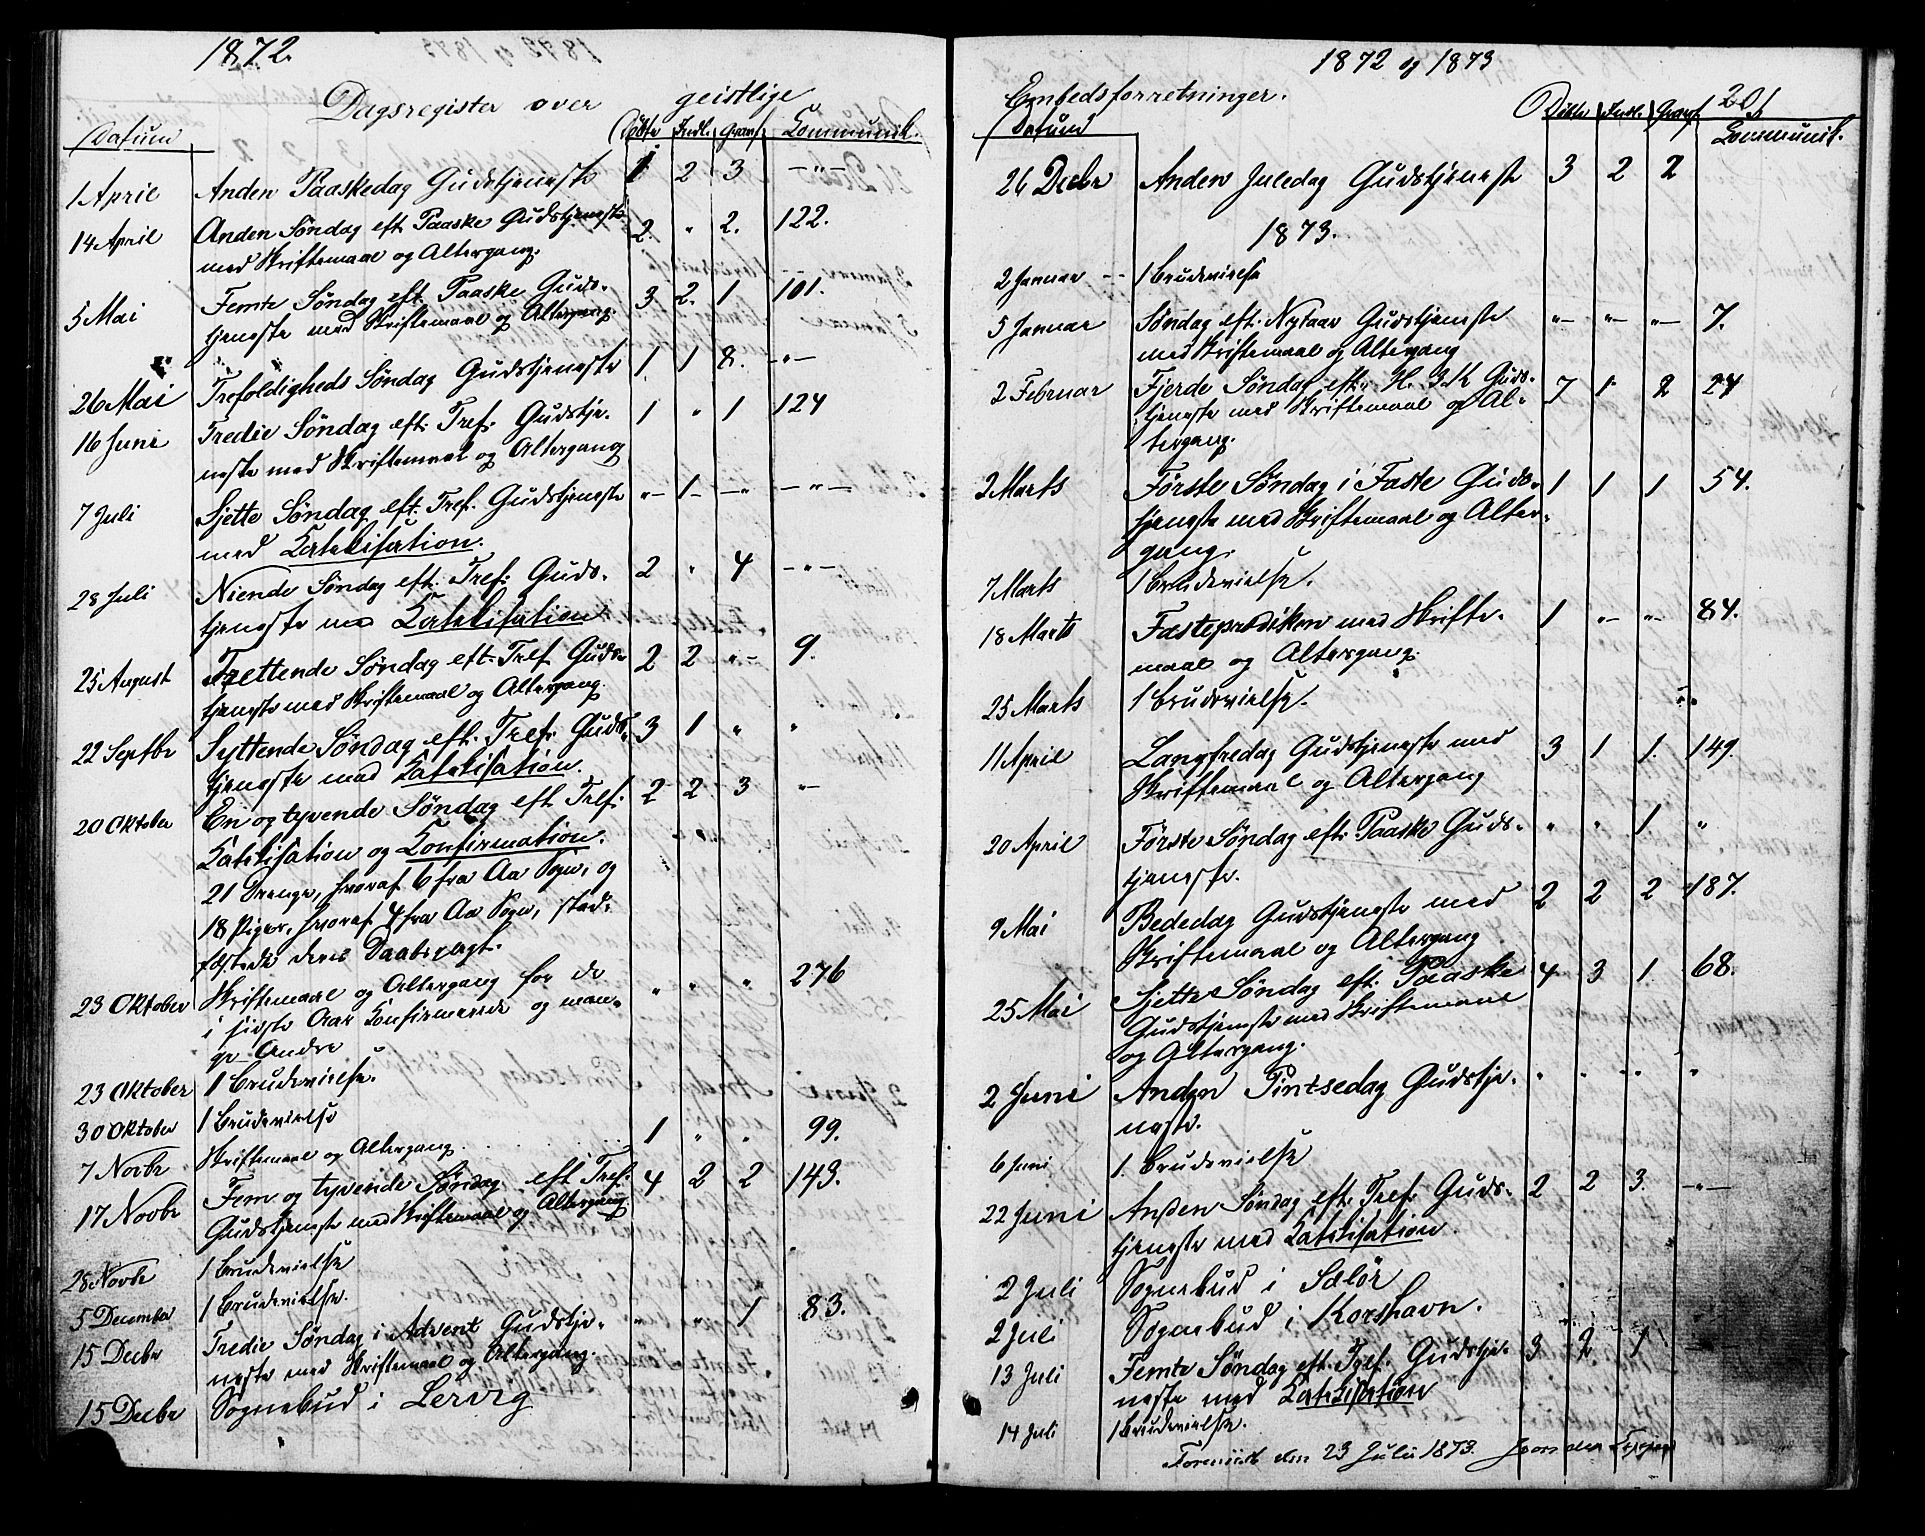 1872.
Dagsregister over geistlige
Datum Döbte Indl. Gravf. Communik.
1 April Anden Paaskedag Gudstjeneste 1 2 3 —"—
14 April Anden Søndag eft Paaske Gudstjeneste 2. " 2. 122.
med Skriftemaal og Altergang.
5 Mai Femte Søndag eft. Paaske Guds- 3 2. 1 101.
tjeneste med Skriftemaal og Altergang.
26 Mai Trefoldigheds Søndag Gudstjeneste 1 1 8. —"—
16 Juni Tredie Søndag eft. Tref. Gudstje- 1 " 1 124
neste med Skriftemaal og Altergang
7 Juli Sjette Søndag eft. Tref. Gudstjeneste "— 1— —" —"—
med Katekisation.
28 Juli Niende Søndag eft. Tref: Guds- 2 " 4 —"—
tjeneste med Katekisation
25 August Trettende Søndag eft. Tref Guds- 2 2 "— 9.
tjeneste med Skriftemaal og Altergang.
22 Septbr Syttende Søndag eft. Tref. Guds- 3 1 " "
tjeneste med Katekisation.
20 Oktober En og tyvende Søndag eft Tref: 2 2 3 "—
Katekisation og Konfirmation.
21 Drenge, hvoraf 6 fra Aa Sogn, og
18 Piger, hvoraf 4 fra Aa Sogn, stad-
fæstede deres Daabspagt.
23 Oktober Skriftemaal og Altergang for de " " " 276
i sidste Aar Konfirmerede og man-
ge Andre
23 Oktober 1 Brudevielse.
30 Oktober 1 Brudevielse
7 Novbr Skriftemaal og Altergang 1 " " 99.
17 Novbr Fem og tyvende Søndag eft Tref: 4 2 2 143.
Gudstjeneste med Skriftemaal og Altergang
28 Novbr 1 Brudevielse
5 December 1 Brudevielse.
15 Decbr Tredie Søndag i Advent Gudstje- " " 1 83.
neste med Skriftemaal og Altergang.
15 Decbr Sognebud i Lervig
1872 og 1873
Embedsforretninger. 201
Datum Döbte Indl. Gravf. Communik.
26 Decbr Anden Juledag Gudstjeneste 3 2 2
1873.
2 Januar -- 1 Brudevielse
5 Januar Søndag eft. Nytaar Gudstjeneste "— "— "— 7.
med Skriftemaal og Altergang
2 Februar Fjerde Søndag eft. H. 3 K Guds- 7 1 2 24
tjeneste med Skriftemaal og Al-
tergang.
2 Marts Første Søndag i Faste Guds- 1 1 1 54.
tjeneste med Skriftemaal og Alter-
gang.
7 Marts 1 Brudevielse.
18 Marts Fasteprædiken med Skrifte- 1 "— "— 84.
maal og Altergang.
25 Marts 1 Brudevielse.
11 April Langfredag Gudstjeneste med 3 1 1. 149.
Skriftemaal og Altergang
20 April Første Søndag eft. Paaske Guds- " " 1 "
tjeneste.
9 Mai Bededag Gudstjeneste med 2 2 2 187.
Skriftemaal og Altergang
25 Mai Sjette Søndag eft. Paaske 4 3 1. 68.
Gudstjeneste med Skriftemaal
og Altergang.
2 Juni Anden Pintsedag Gudstje- " " " "
neste.
6 Juni 1 Brudevielse
22 Juni Anden Søndag eft. Tref. Guds- 2 2 3. —"—
tjeneste med Katekisation.
2 Juli Sognebud i Selör
2 Juli Sognebud i Korshavn.
13 Juli Femte Søndag eft. Tref. Gudstje- 3 2. 1
neste med Katekisation
14 Juli 1 Brudevielse.
den 23 Juli 1873.